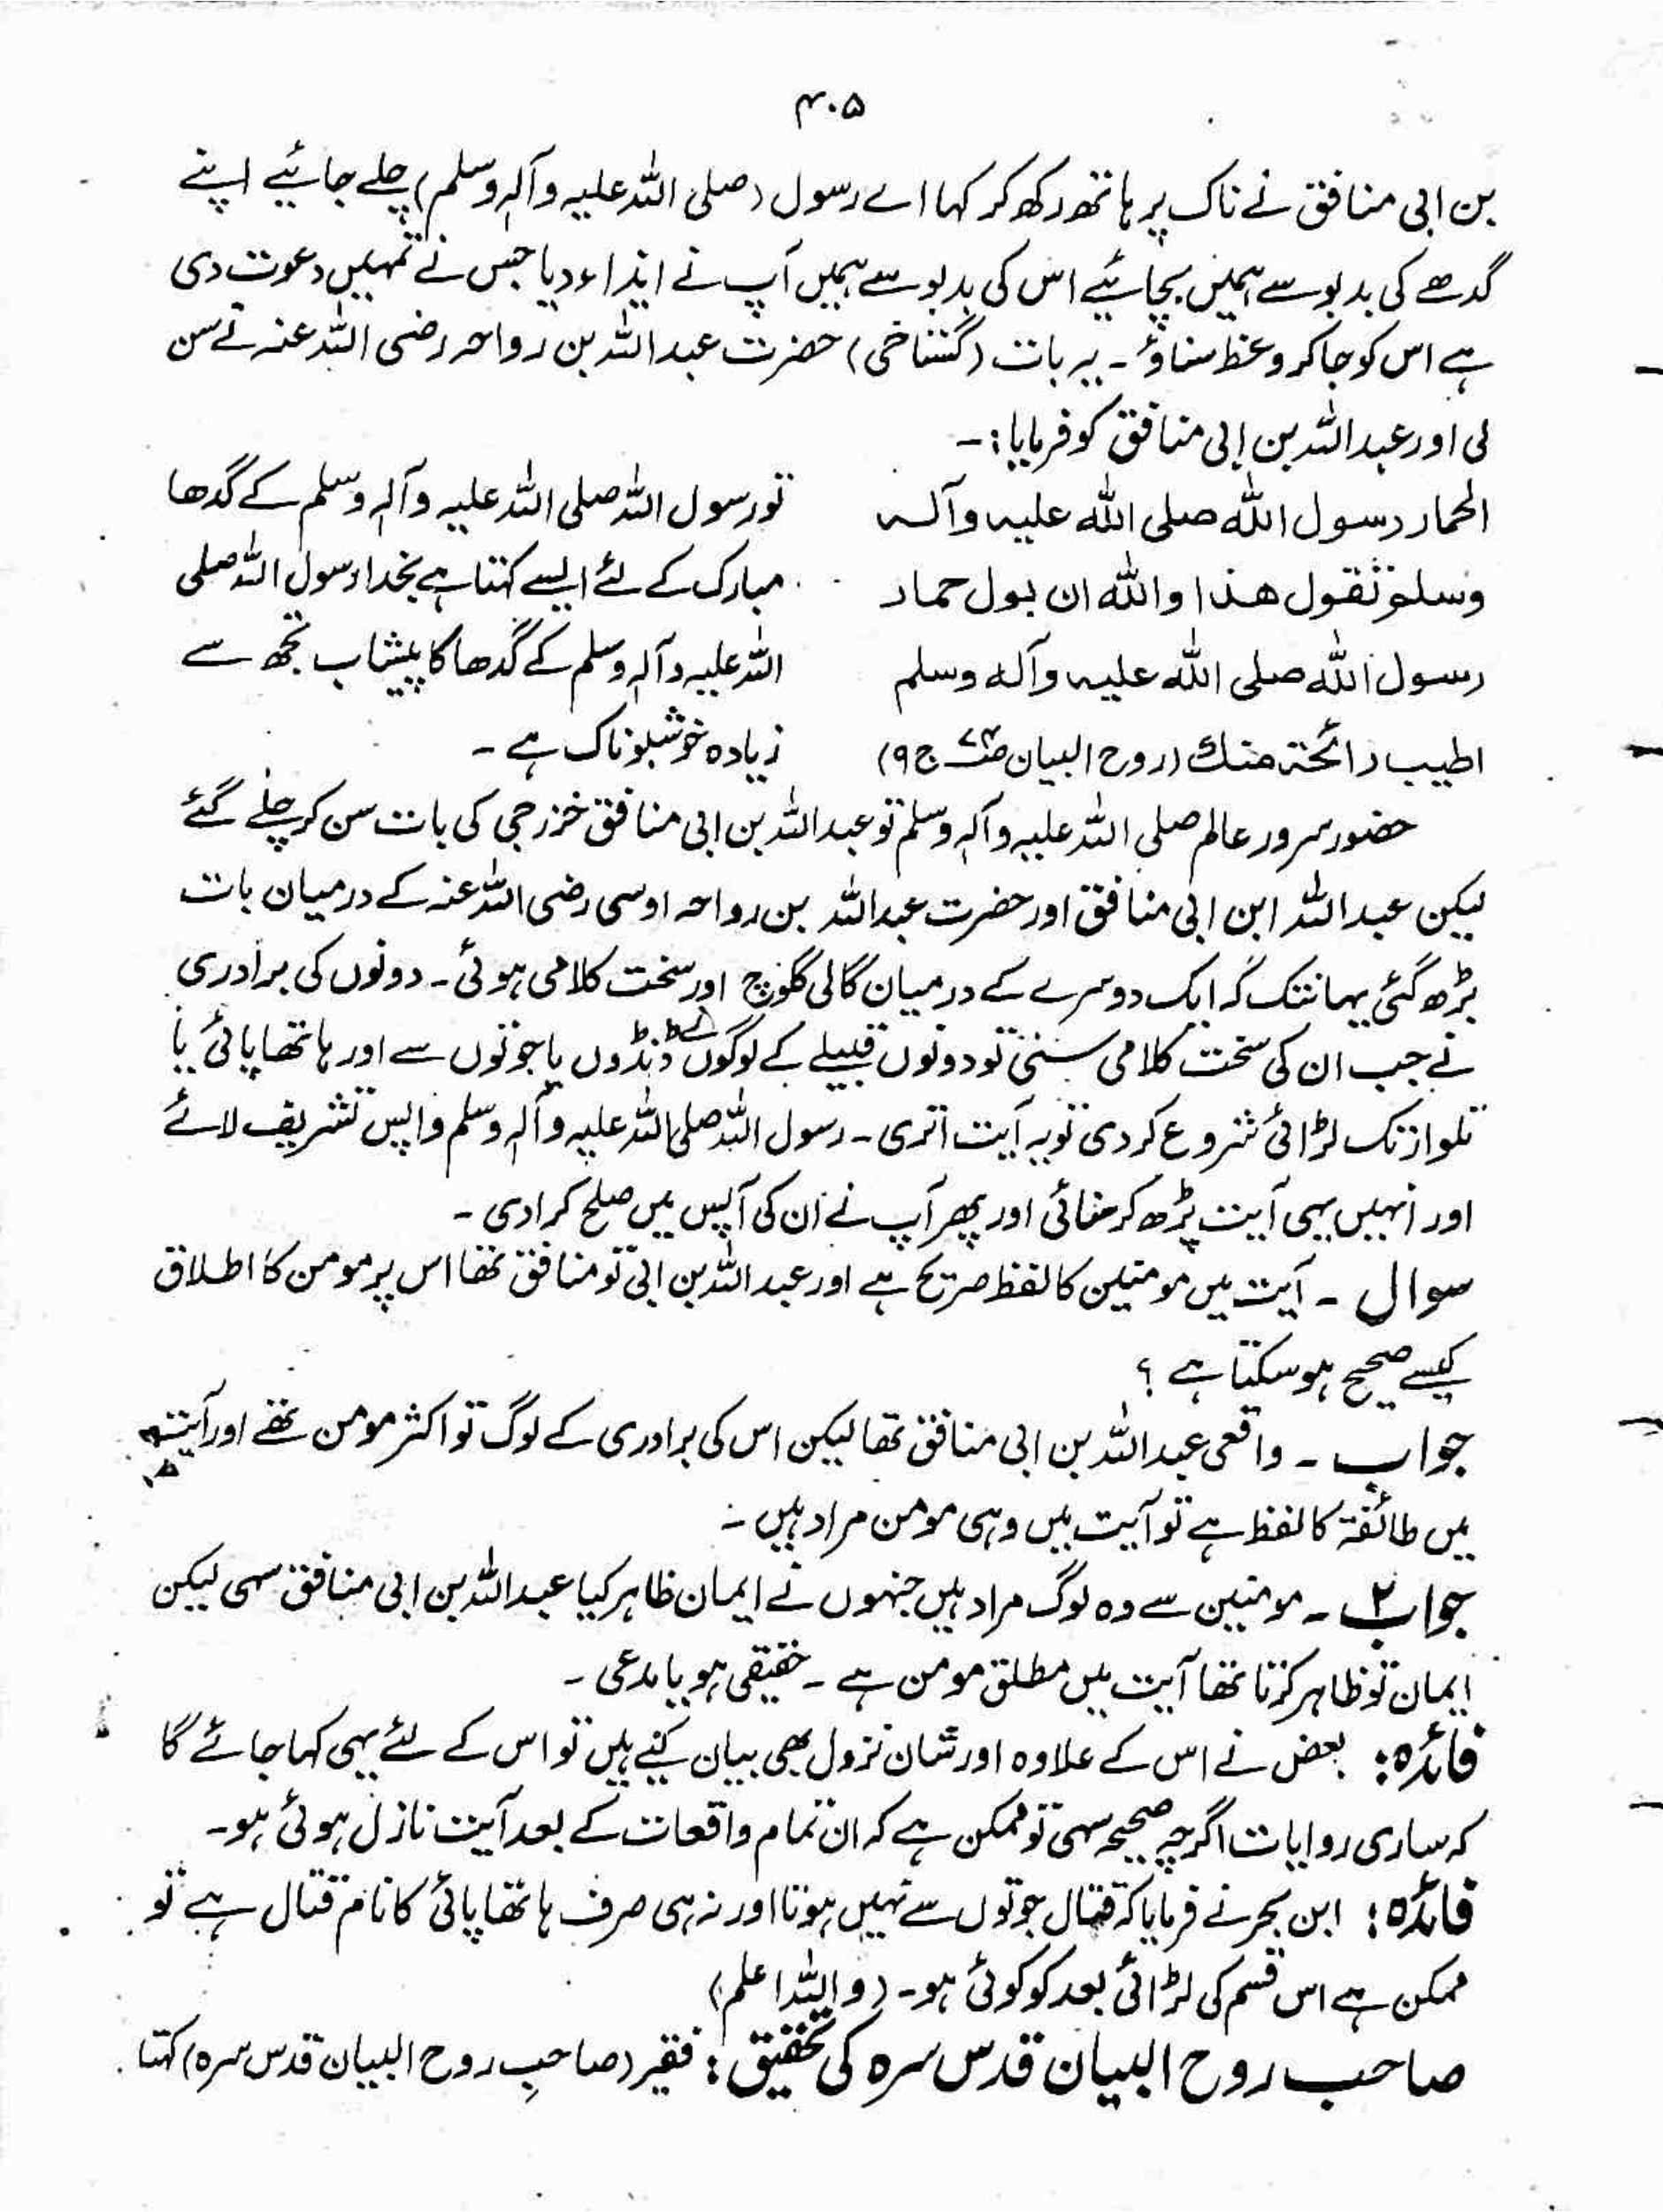 ۴۰۵
بن ابی منافق نے ناک پر ہاتھ رکھ کر کہا اے رسول (صلی اللہ علیہ وآلہ وسلم) چلے جائیے اپنے
گدھے کی بدبو سے ہمیں بچائیے اس کی بدبو سے ہمیں آپ نے ایذاء دیا جس نے تمہیں دعوت دی
ہے اس کو جا کر وعظ سناؤ ۔ یہ بات (گستاخی) حضرت عبداللہ بن رواحہ رضی اللہ عنہ نے سن
لی اور عبداللہ بن ابی منافق کو فرمایا :۔
الحمار رسول اللہ صلی اللہ علیہ وآلہ
وسلم تقول ھذا واللہ ان بول حمار
رسول اللہ صلی اللہ علیہ وآلہ وسلم
اطیب رائحۃ منك (روح البیان ج ۹)
تو رسول اللہ صلی اللہ علیہ وآلہ وسلم کے گدھا
مبارک کے لئے ایسے کہتا ہے بخدا رسول اللہ صلی
اللہ علیہ وآلہ وسلم کے گدھا کا پیشاب تجھ سے
زیادہ خوشبوناک ہے ۔
حضور سرور عالم صلی اللہ علیہ وآلہ وسلم تو عبداللہ بن ابی منافق خزرجی کی بات سن کر چلے گئے
لیکن عبداللہ ابن ابی منافق اور حضرت عبداللہ بن رواحہ اوسی رضی اللہ عنہ کے درمیان بات
بڑھ گئی یہانتک کہ ایک دوسرے کے درمیان گالی گلوچ اور سخت کلامی ہوئی ۔ دونوں کی برادری
نے جب ان کی سخت کلامی سنی تو دونوں قبیلے کے لوگوں نے ڈنڈوں یا جوتوں سے اور ہاتھا پائی یا
تلوار تک لڑائی شروع کر دی تو یہ آیت اتری ۔ رسول اللہ صلی اللہ علیہ وآلہ وسلم واپس تشریف لائے
اور انہیں یہی آیت پڑھ کر سنائی اور پھر آپ نے ان کی آپس میں صلح کرادی ۔
سوال ۔ آیت میں مومنین کا لفظ صریح ہے اور عبداللہ بن ابی تو منافق تھا اس پر مومن کا اطلاق
کیسے صحیح ہو سکتا ہے ؟
جواب ۔ واقعی عبداللہ بن ابی منافق تھا لیکن اس کی برادری کے لوگ تو اکثر مومن تھے اور آیت
میں طائفۃ کا لفظ ہے تو آیت میں وہی مومن مراد ہیں ۔
جواب ۲ ۔ مومنین سے وہ لوگ مراد ہیں جنہوں نے ایمان ظاہر کیا عبداللہ بن ابی منافق سہی لیکن
ایمان تو ظاہر کرتا تھا آیت میں مطلق مومن ہے ۔ حقیقی ہو یا مدعی ۔
فائدہ : بعض نے اس کے علاوہ اور شان نزول بھی بیان کئے ہیں تو اس کے لئے یہی کہا جائے گا
کہ ساری روایات اگرچہ صحیح سہی تو ممکن ہے کہ ان تمام واقعات کے بعد آیت نازل ہوئی ہو ۔
فائدہ : ابن بحر نے فرمایا کہ قتال جوتوں سے نہیں ہوتا اور نہ ہی صرف ہاتھا پائی کا نام قتال ہے تو
ممکن ہے اس قسم کی لڑائی بعد کو کوئی ہو ۔ (واللہ اعلم)
صاحب روح البیان قدس سرہ کی تحقیق : فقیر (صاحبِ روح البیان قدس سرہ) کہتا